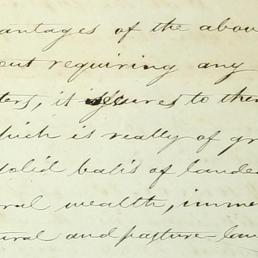 antages of the abo
out requiring any
ters, it insures to them
which is really of gr
solid basis of landed
ural wealth, imme
tural and pasture lan